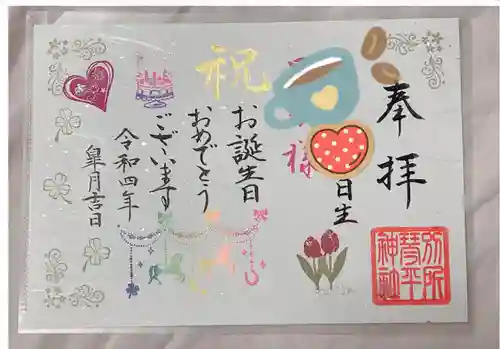 奉拝
様
日生
祝
お誕生日
おめでとう
ございます
令和四年
皐月吉日
別所
琴平
神社